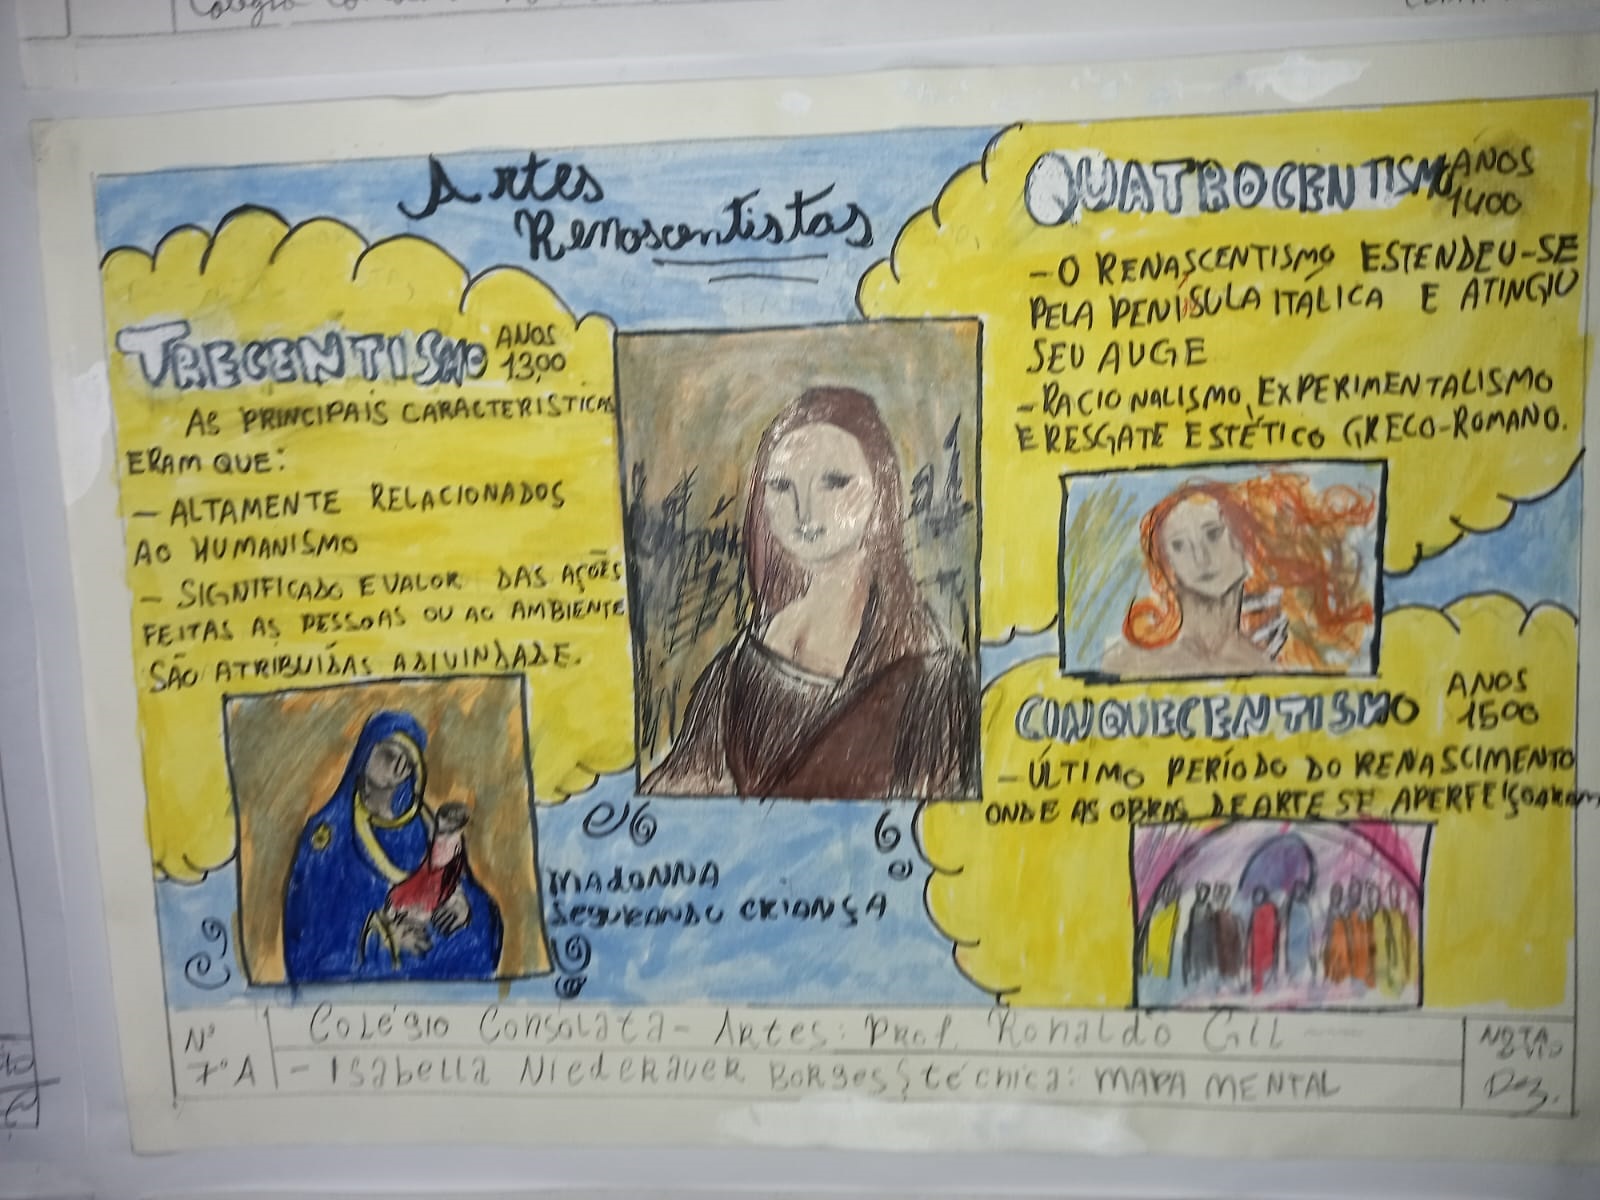 Artes
Renascentistas
TRECENTISMO ANOS 1300
AS PRINCIPAIS CARACTERISTICAS
ERAM QUE:
- ALTAMENTE RELACIONADOS
AO HUMANISMO
- SIGNIFICADO E VALOR DAS AÇÕES
FEITAS AS PESSOAS OU AO AMBIENTE
SÃO ATRIBUÍDAS A DIVINDADE.
MADONNA
SEGURANDO CRIANÇA
QUATROCENTISMO ANOS 1400
- O RENASCENTISMO ESTENDEU-SE
PELA PENÍSULA ITÁLICA E ATINGIU
SEU AUGE
- RACIONALISMO, EXPERIMENTALISMO
E RESGATE ESTÉTICO GRECO-ROMANO.
CINQUECENTISMO ANOS 1500
- ÚLTIMO PERÍODO DO RENASCIMENTO
ONDE AS OBRAS DE ARTE SE APERFEIÇOARAM
Nº
7ºA
Colégio Consolata - Artes: Prof. Ronaldo Gill
- Isabella Niederauer Borges; técnica: MAPA MENTAL
NOTA
Dez.